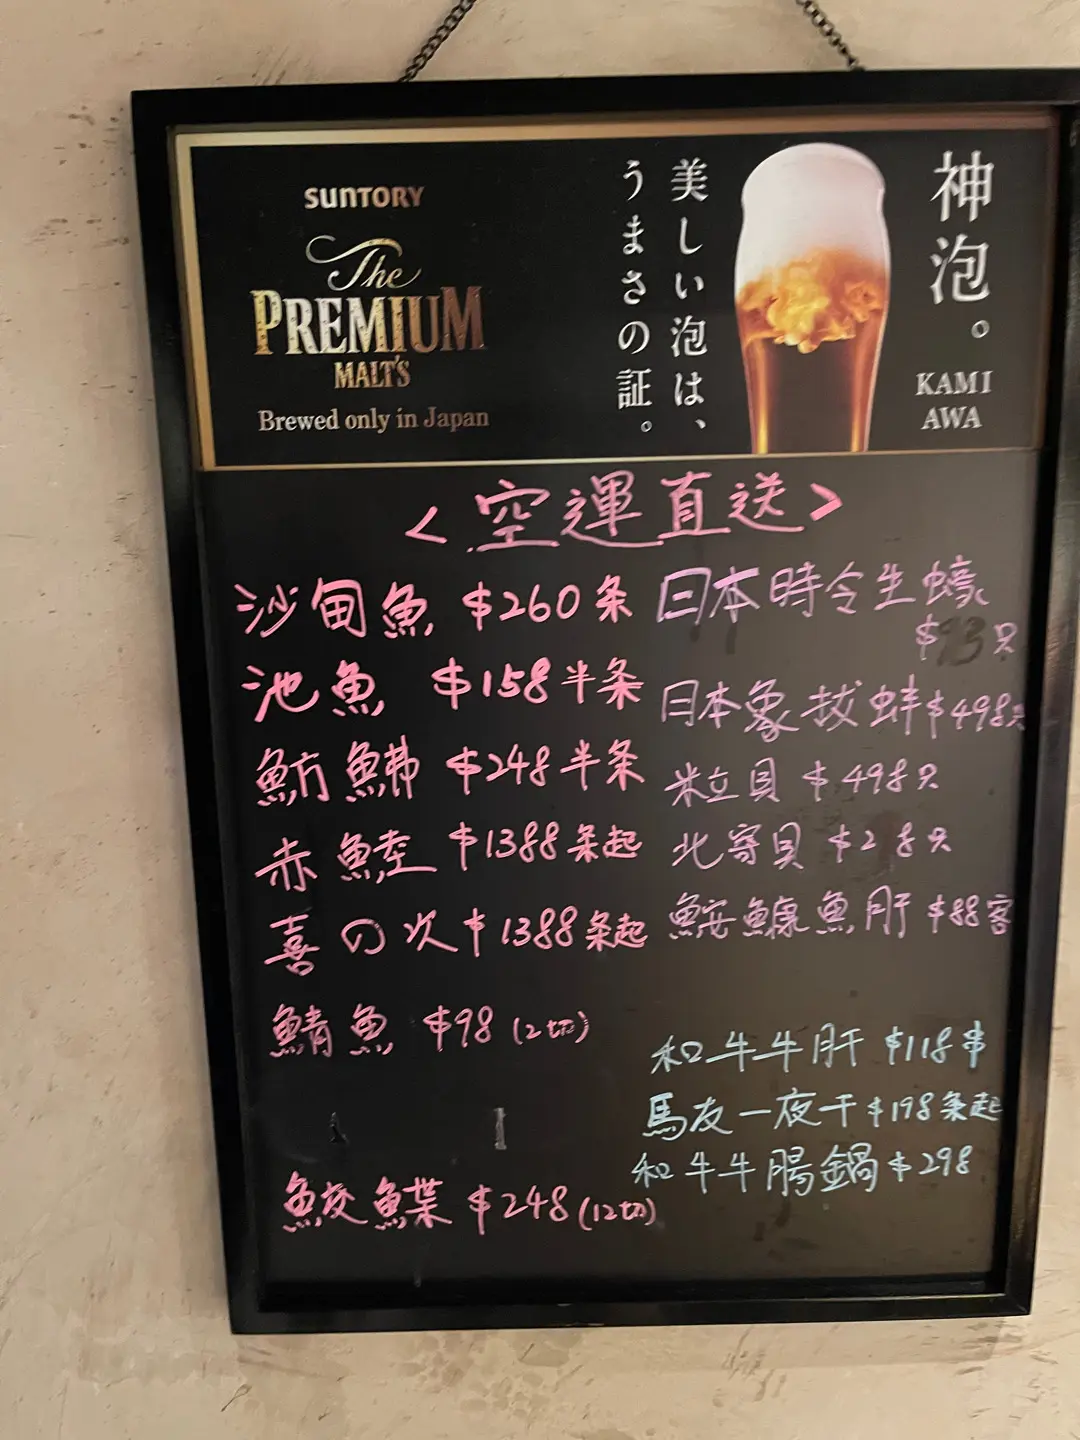 SUNTORY
The
PREMIUM
MALT'S
Brewed only in Japan
神泡。
KAMI
AWA
美しい泡は、
うまさの証。
<空運直送>
沙甸魚 $260条
池魚 $158半条
魴鮄 $248半条
赤鯥 $1388条起
喜の次 $1388条起
鯖魚 $98 (2切)
鮫鰈 $248 (12切)
日本時令生蠔
$93只
日本象拔蚌 $498只
粒貝 $498只
北寄貝 $28只
鮟鱇魚肝 $88客
和牛牛肝 $118串
馬友一夜干 $198条起
和牛牛腸鍋 $298